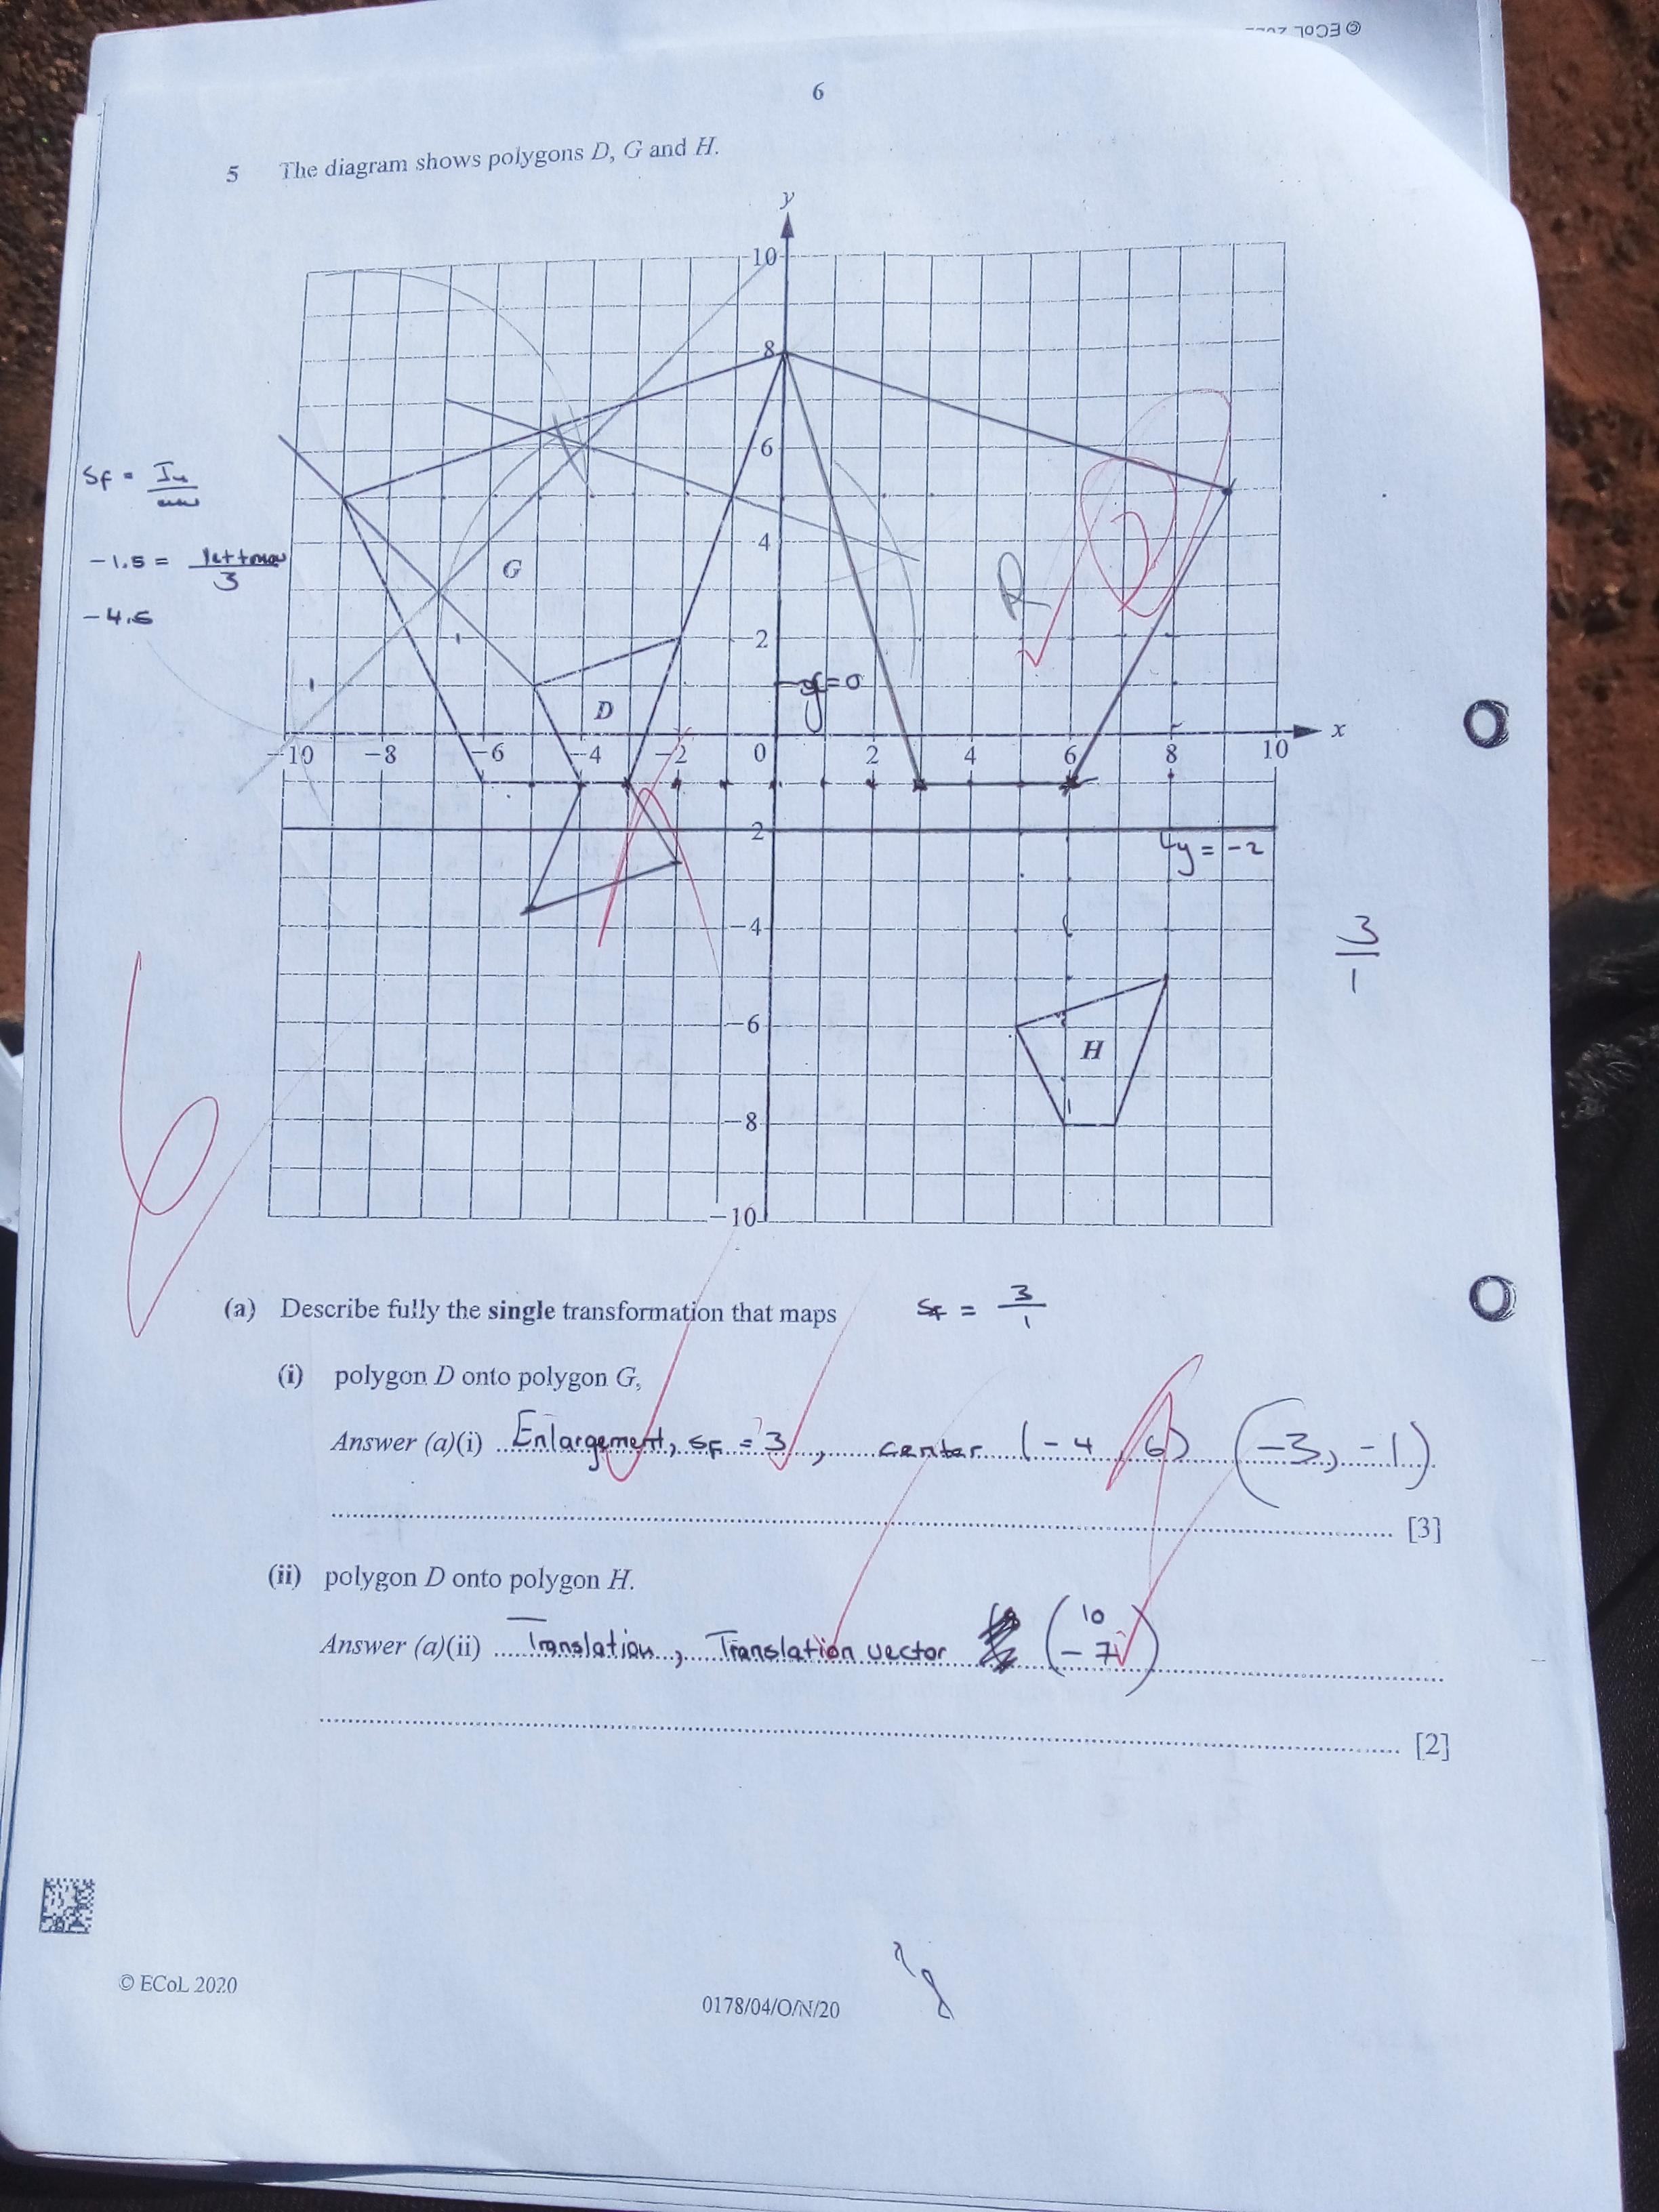 6
5 The diagram shows polygons D, G and H.
y
10
8
6
4
2
G
D
R
y=0
-10 -8 -6 -4 -2 0 2 4 6 8 10 x
2
y = -2
-4
-6
H
-8
-10
SF =
-1.5 =
3
-4.5
3
1
6
(a) Describe fully the single transformation that maps SF = 3
1
(i) polygon D onto polygon G,
Answer (a)(i) Enlargement, SF = 3, center (-4, 6) (-3, -1)
[3]
(ii) polygon D onto polygon H.
Answer (a)(ii) Translation, Translation vector (10
-7)
[2]
© ECoL 2020
0178/04/O/N/20